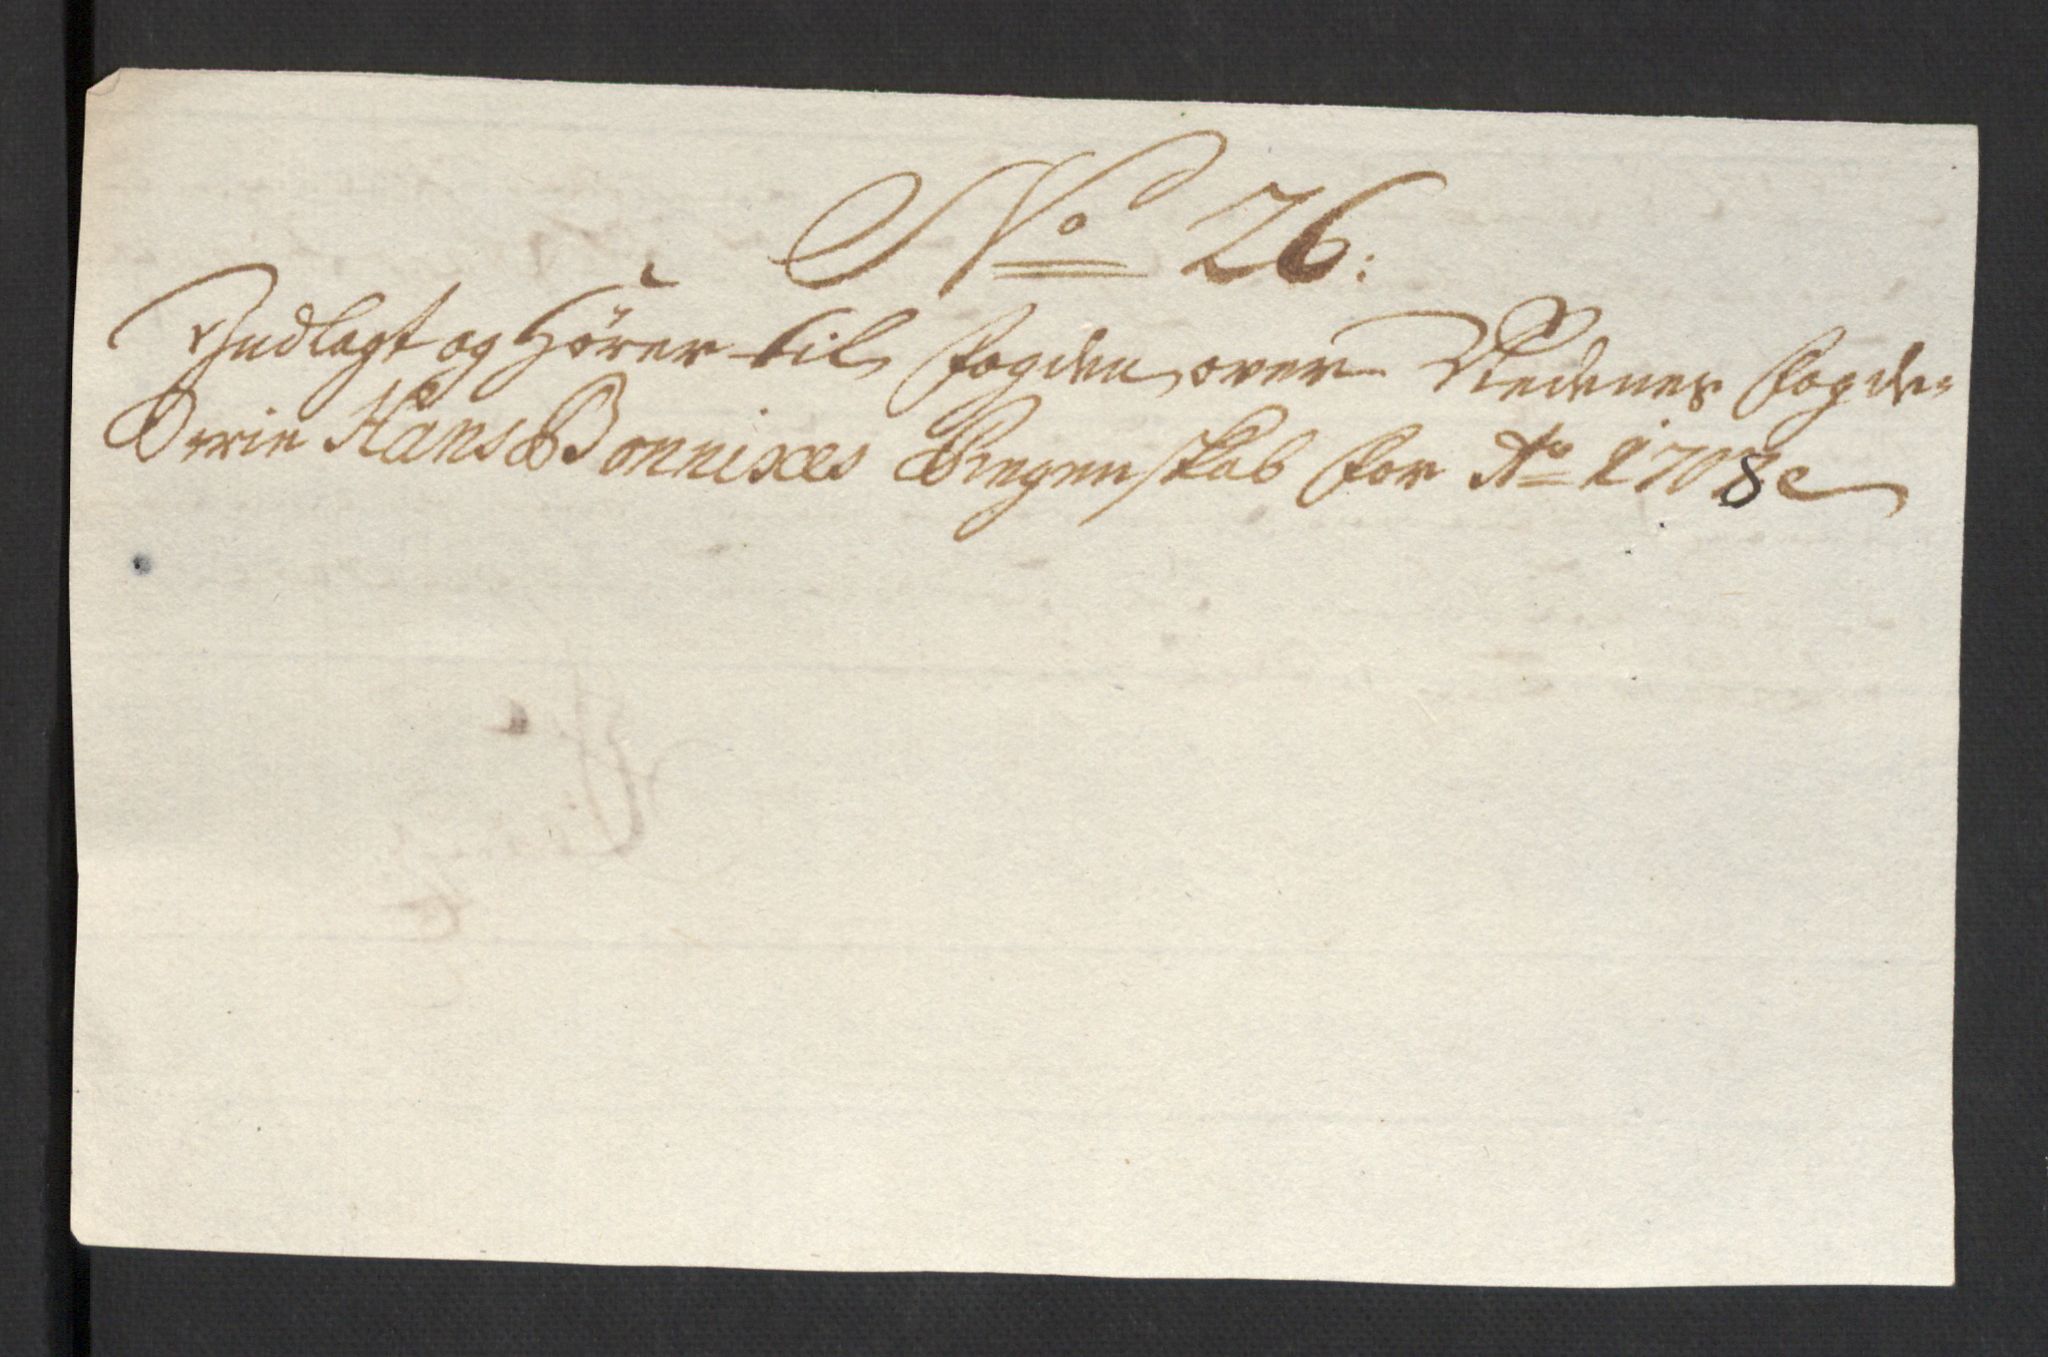 No 26:
Indlagt og Hörer til fogden over Nedenes fogde=
Derie Hans Bonnixes Regenskab for Ao 1708